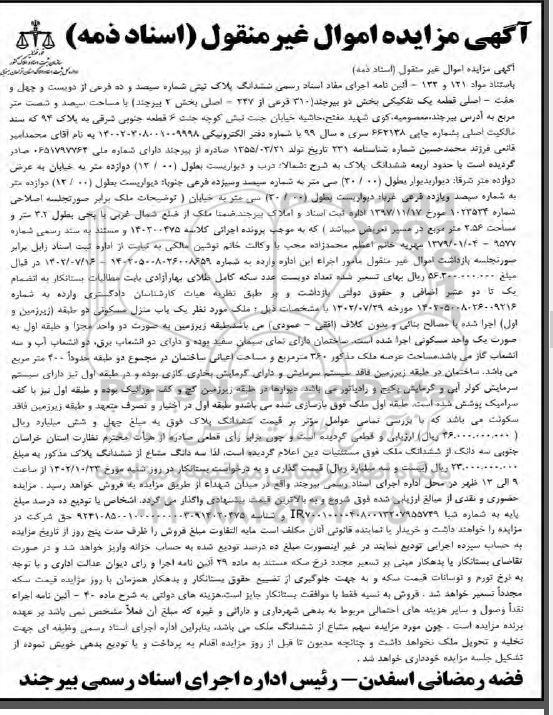 آگهی مزایده اموال غیر منقول (اسناد ذمه)
آگهی مزایده اموال غیر منقول (اسناد ذمه)
باستناد مواد ۱۲۱ و ۱۲۲ - آئین نامه اجرای مفاد اسناد رسمی ششدانگ پلاک ثبتی شماره سیصد و ده فرعی از دویست و چهل و
هفت - اصلی قطعه یک تفکیکی بخش دو بیرجند(۳۱۰ فرعی از ۲۴۷ - اصلی بخش ۲ بیرجند) با مساحت سیصد و شصت متر
مربع به آدرس بیرجند،معصومیه،کوی شهید مفتح،حاشیه خیابان جنت نبش کوچه جنت ۶ قطعه جنوبی شرقی به پلاک ۹۴ که سند
مالکیت اصلی بشماره چاپی ۶۶۲۱۳۸ سری ه سال ۹۹ با شماره دفتر الکترونیکی ۱۴۰۰۲۰۳۰۸۰۰۱۰۰۹۹۹۸ به نام آقای محمدامیر
قانعی فرزند محمدحسین شماره شناسنامه ۲۳۱ تاریخ تولد ۱۳۵۵/۰۳/۲۱ صادره از بیرجند دارای شماره ملی ۰۶۵۱۷۹۷۷۶۴ صادر
گردیده است با حدود اربعه ششدانگ پلاک به شرح :شمالا: درب و دیواریست بطول (۱۲/۰۰) دوازده متر به خیابان به عرض
دوازده متر شرقا: دیواربدیوار بطول (۳۰/۰۰) سی متر به شماره سیصد وسیزده فرعی جنوبا: دیواریست بطول (۱۲/۰۰) دوازده متر
به شماره سیصد ویازده فرعی غربا: دیواریست بطول (۳۰/۰۰) سی متر به خیابان ( توضیحات ملک برابر صورتجلسه اصلاحی
شماره ۱۰۲۳۵۲۴ مورخ ۱۳۹۷/۱۱/۱۷ اداره ثبت اسناد و املاک بیرجند،ضمنا ملک از ضلع شمال غربی با پخی بطول ۳.۲ متر و
مساحت ۲.۵۶ متر مربع در مسیر تعریض میباشد ) که به موجب پرونده اجرائی کلاسه ۱۴۰۲۰۰۴۷۵ و مستند به سند رسمی شماره
۹۵۷۷ - ۱۳۷۹/۰۱/۰۴ مهریه خانم اعظم محمدزاده محب با وکالت خانم نوشین مالکی به نیابت از اداره ثبت اسناد زابل برابر
صورتجلسه بازداشت اموال غیر منقول مامور اجراء این اداره وارده به شماره ۱۴۰۲۰۵۰۰۸۰۲۶۰۰۸۶۵۹ - ۱۴۰۲/۰۷/۱۶ در قبال
مبلغ ۵۶.۳۰۰.۰۰۰.۰۰۰ ریال بهای تسعیر شده تعداد دویست عدد سکه کامل طلای بهارآزادی بابت مطالبات بستانکار به انضمام
یک تا دو عشر اضافی و حقوق دولتی بازداشت و بر طبق نظریه هیات کارشناسان دادگستری وارده به شماره
۱۴۰۲۰۵۰۰۸۰۲۶۰۰۹۲۱۶ مورخه ۱۴۰۲/۰۷/۲۹ با مشخصات ذیل : ملک مورد نظر یک باب منزل مسکونی دو طبقه (زیرزمین و
اول) اجرا شده با مصالح بنائی و بدون کلاف (افقی - عمودی) می باشد،طبقه زیرزمین به صورت دو واحد مجزا و طبقه اول به
صورت یک واحد مسکونی اجرا شده است. ساختمان دارای نمای سیمان سفید بوده و دارای دو انشعاب برق، دو انشعاب آب و سه
انشعاب گاز می باشد،مساحت عرصه ملک مذکور ۳۶۰ مترمربع و مساحت اعیانی ساختمان در مجموع دو طبقه حدوداً ۴۰۰ متر مربع
می باشد. ساختمان در طبقه زیرزمین فاقد سیستم سرمایش و دارای گرمایش بخاری گازی بوده و در طبقه اول نیز دارای سیستم
سرمایش کولر آبی و گرمایش پکیج و رادیاتور می باشد دیوارها در طبقه زیرزمین گچ و کف موزائیک بوده و طبقه اول نیز با کف
سرامیک پوشش شده است. طبقه اول ملک فوق بازسازی شده می باشدو طبقه اول در اختیار و تصرف متعهد و طبقه زیرزمین فاقد
سکونت می باشد که با بررسی تمامی عوامل موثر بر قیمت ششدانگ پلاک فوق به مبلغ چهل و شش میلیارد ریال
( ۴۶.۰۰۰.۰۰۰.۰۰۰ ریال) ارزیابی و قطعی گردیده است و چون برابر رأی قطعی صادره از هیأت محترم نظارت استان خراسان
جنوبی سه دانگ از ششدانگ ملک فوق مستثنیات دین اعلام گردیده است، لذا سه دانگ مشاع از ششدانگ پلاک مذکور به مبلغ
۲۳.۰۰۰.۰۰۰.۰۰۰ ریال (بیست و سه میلیارد ریال) قیمت گذاری و به درخواست بستانکار در روز شنبه مورخ ۱۴۰۲/۱۰/۲۳ از ساعت
۹ الی ۱۲ ظهر در محل اداره اجرای اسناد رسمی بیرجند واقع در میدان شهداء از طریق مزایده به فروش خواهد رسید . مزایده
حضوری و نقدی از مبالغ ارزیابی شده فوق شروع و به بالاترین قیمت پیشنهادی واگذار می گردد. اشخاص با تودیع ده درصد مبلغ
پایه به شماره شبا و شناسه حق شرکت در
مزایده را خواهند داشت و خریدار یا نماینده قانونی آنان مکلف است مابه التفاوت مبلغ فروش را ظرف مدت پنج روز از تاریخ مزایده
به حساب سپرده اجرایی تودیع نمایند در غیر اینصورت مبلغ ده درصد تودیع شده به حساب خزانه واریز خواهد شد و در صورت
تقاضای بستانکار یا بدهکار مبنی بر تسعیر مجدد نرخ سکه مستند به ماده ۲۹ آئین نامه اجرا و رای دیوان عدالت اداری و با توجه
به نرخ تورم و نوسانات قیمت سکه و به جهت جلوگیری از تضییع حقوق بستانکار و بدهکار همزمان با روز مزایده قیمت سکه
مجدداً تسعیر خواهد شد . فروش به نسیه فقط با موافقت بستانکار جایز است،هزینه های دولتی به شرح ماده ۴۰ - آئین نامه اجراء
نقداً وصول و سایر هزینه های احتمالی مربوط به بدهی شهرداری و دارائی و غیره که مبلغ آن فعلاً مشخص نمی باشد بر عهده
برنده مزایده است . چون مورد مزایده سهم مشاع از ششدانگ ملک می باشد، بنابراین اداره اجرای اسناد رسمی وظیفه ای جهت
تخلیه و تحویل ملک نخواهد داشت و چنانچه مدیون تا قبل از روز مزایده اقدام به پرداخت و یا تودیع بدهی خویش نموده از
تشکیل جلسه مزایده خودداری خواهد شد .
فضه رمضانی اسفدن– رئیس اداره اجرای اسناد رسمی بیرجند